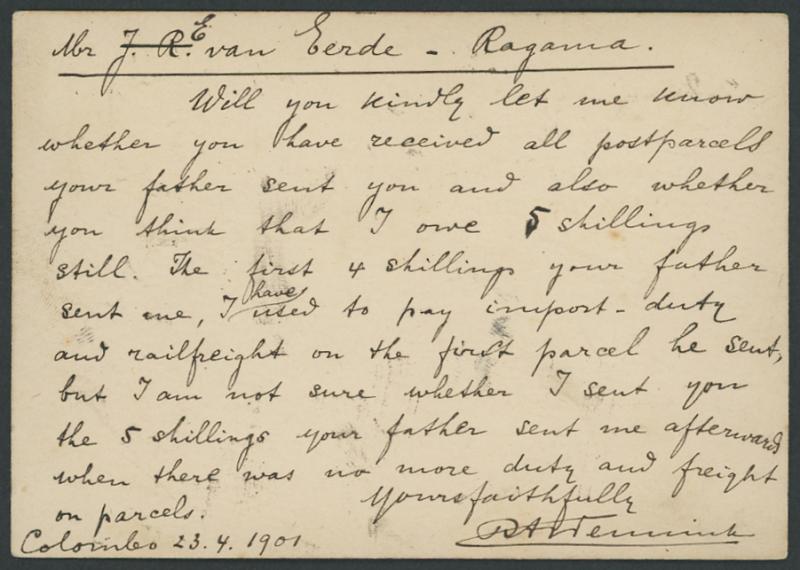 Mr J. R. E. van Eerde - Ragama.
Will you kindly let me know
whether you have received all postparcels
your father sent you and also whether
you think that I owe 5 shillings
still. The first 4 shillings your father
sent me, I have used to pay import-duty
and railfreight on the first parcel he sent,
but I am not sure whether I sent you
the 5 shillings your father sent me afterwards
when there was no more duty and freight
on parcels.
Yours faithfully
Colombo 23.4.1901